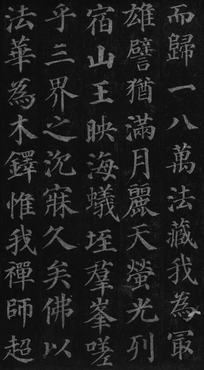 而歸一八萬法藏我為冣
雄譬猶滿月麗天螢光列
宿山王映海蟻垤群峯嗟
乎三界之沉寐久矣佛以
法華為木鐸惟我禪師超